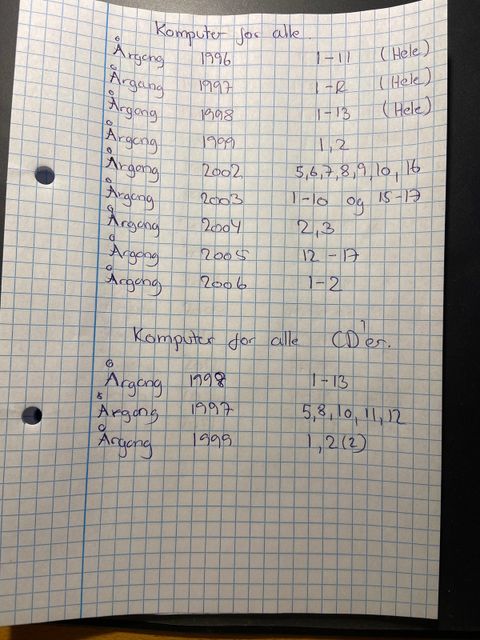 Komputer for alle.
Årgang 1996 1-11 (Hele)
Årgang 1997 1-12 (Hele)
Årgang 1998 1-13 (Hele)
Årgang 1999 1,2
Årgang 2002 5,6,7,8,9,10,16
Årgang 2003 1-10 og 15-17
Årgang 2004 2,3
Årgang 2005 12-17
Årgang 2006 1-2
Komputer for alle CD'er.
Årgang 1998 1-13
Årgang 1997 5,8,10,11,12
Årgang 1999 1,2(2)